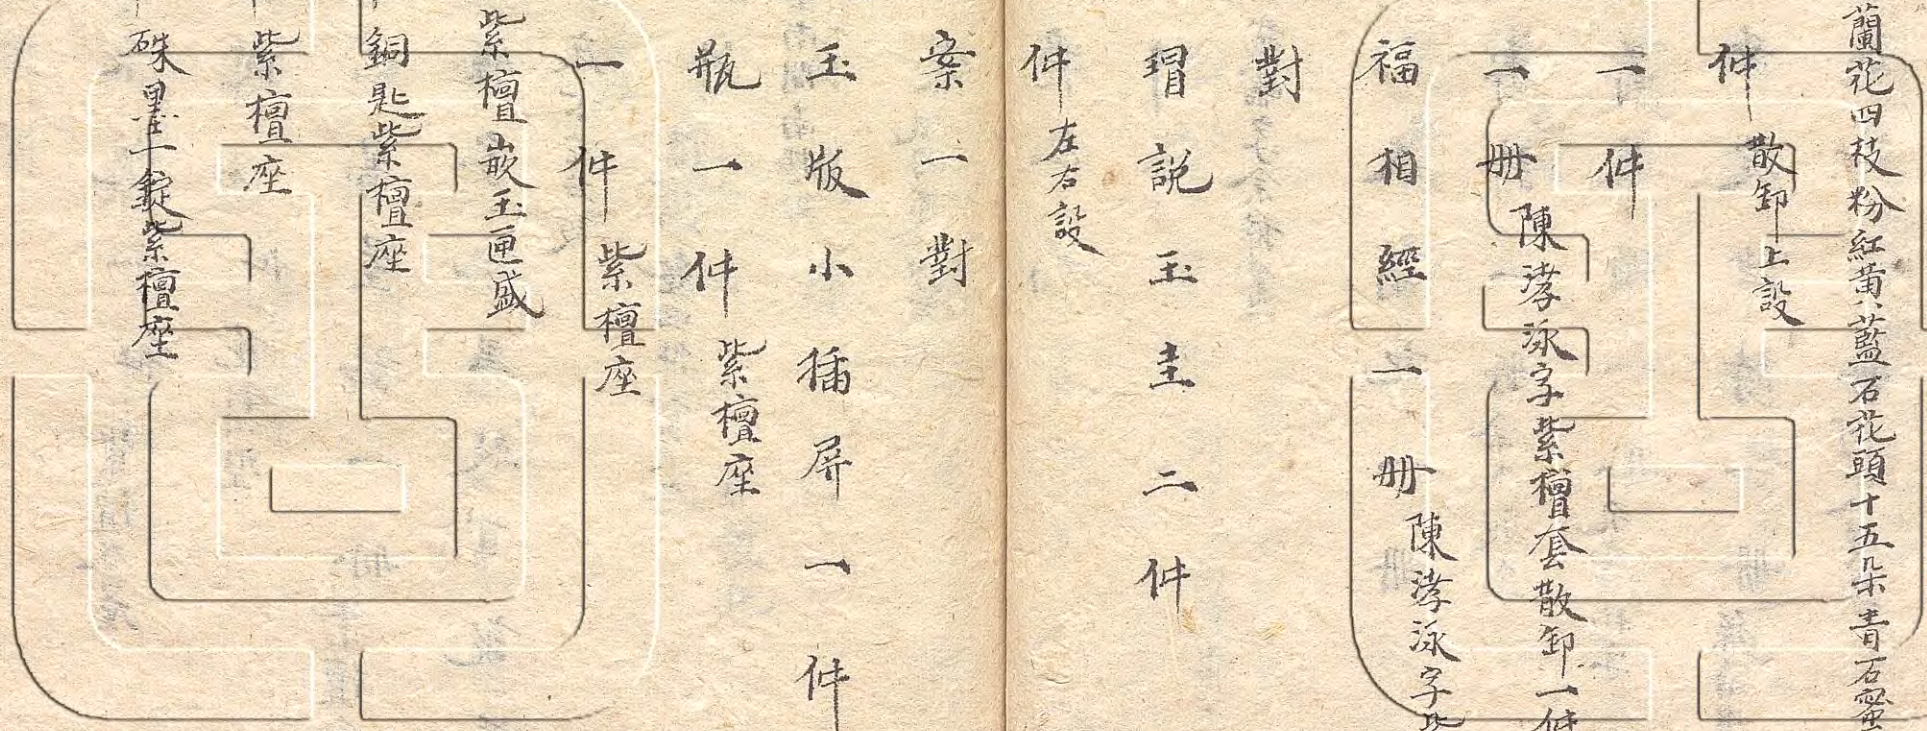 蘭花四枝粉紅黃八藍石花頭十五朵青石蜜
件散卸上設
一件
一册陳孝泳字紫檀套散卸一件
福相經一册陳孝泳字
對
瑁說玉圭二件
件左右設
案一對
玉版小插屏一件
瓶一件紫檀座
一件紫檀座
紫檀嵌玉匣盛
銅匙紫檀座
紫檀座
硃墨一錠紫檀座